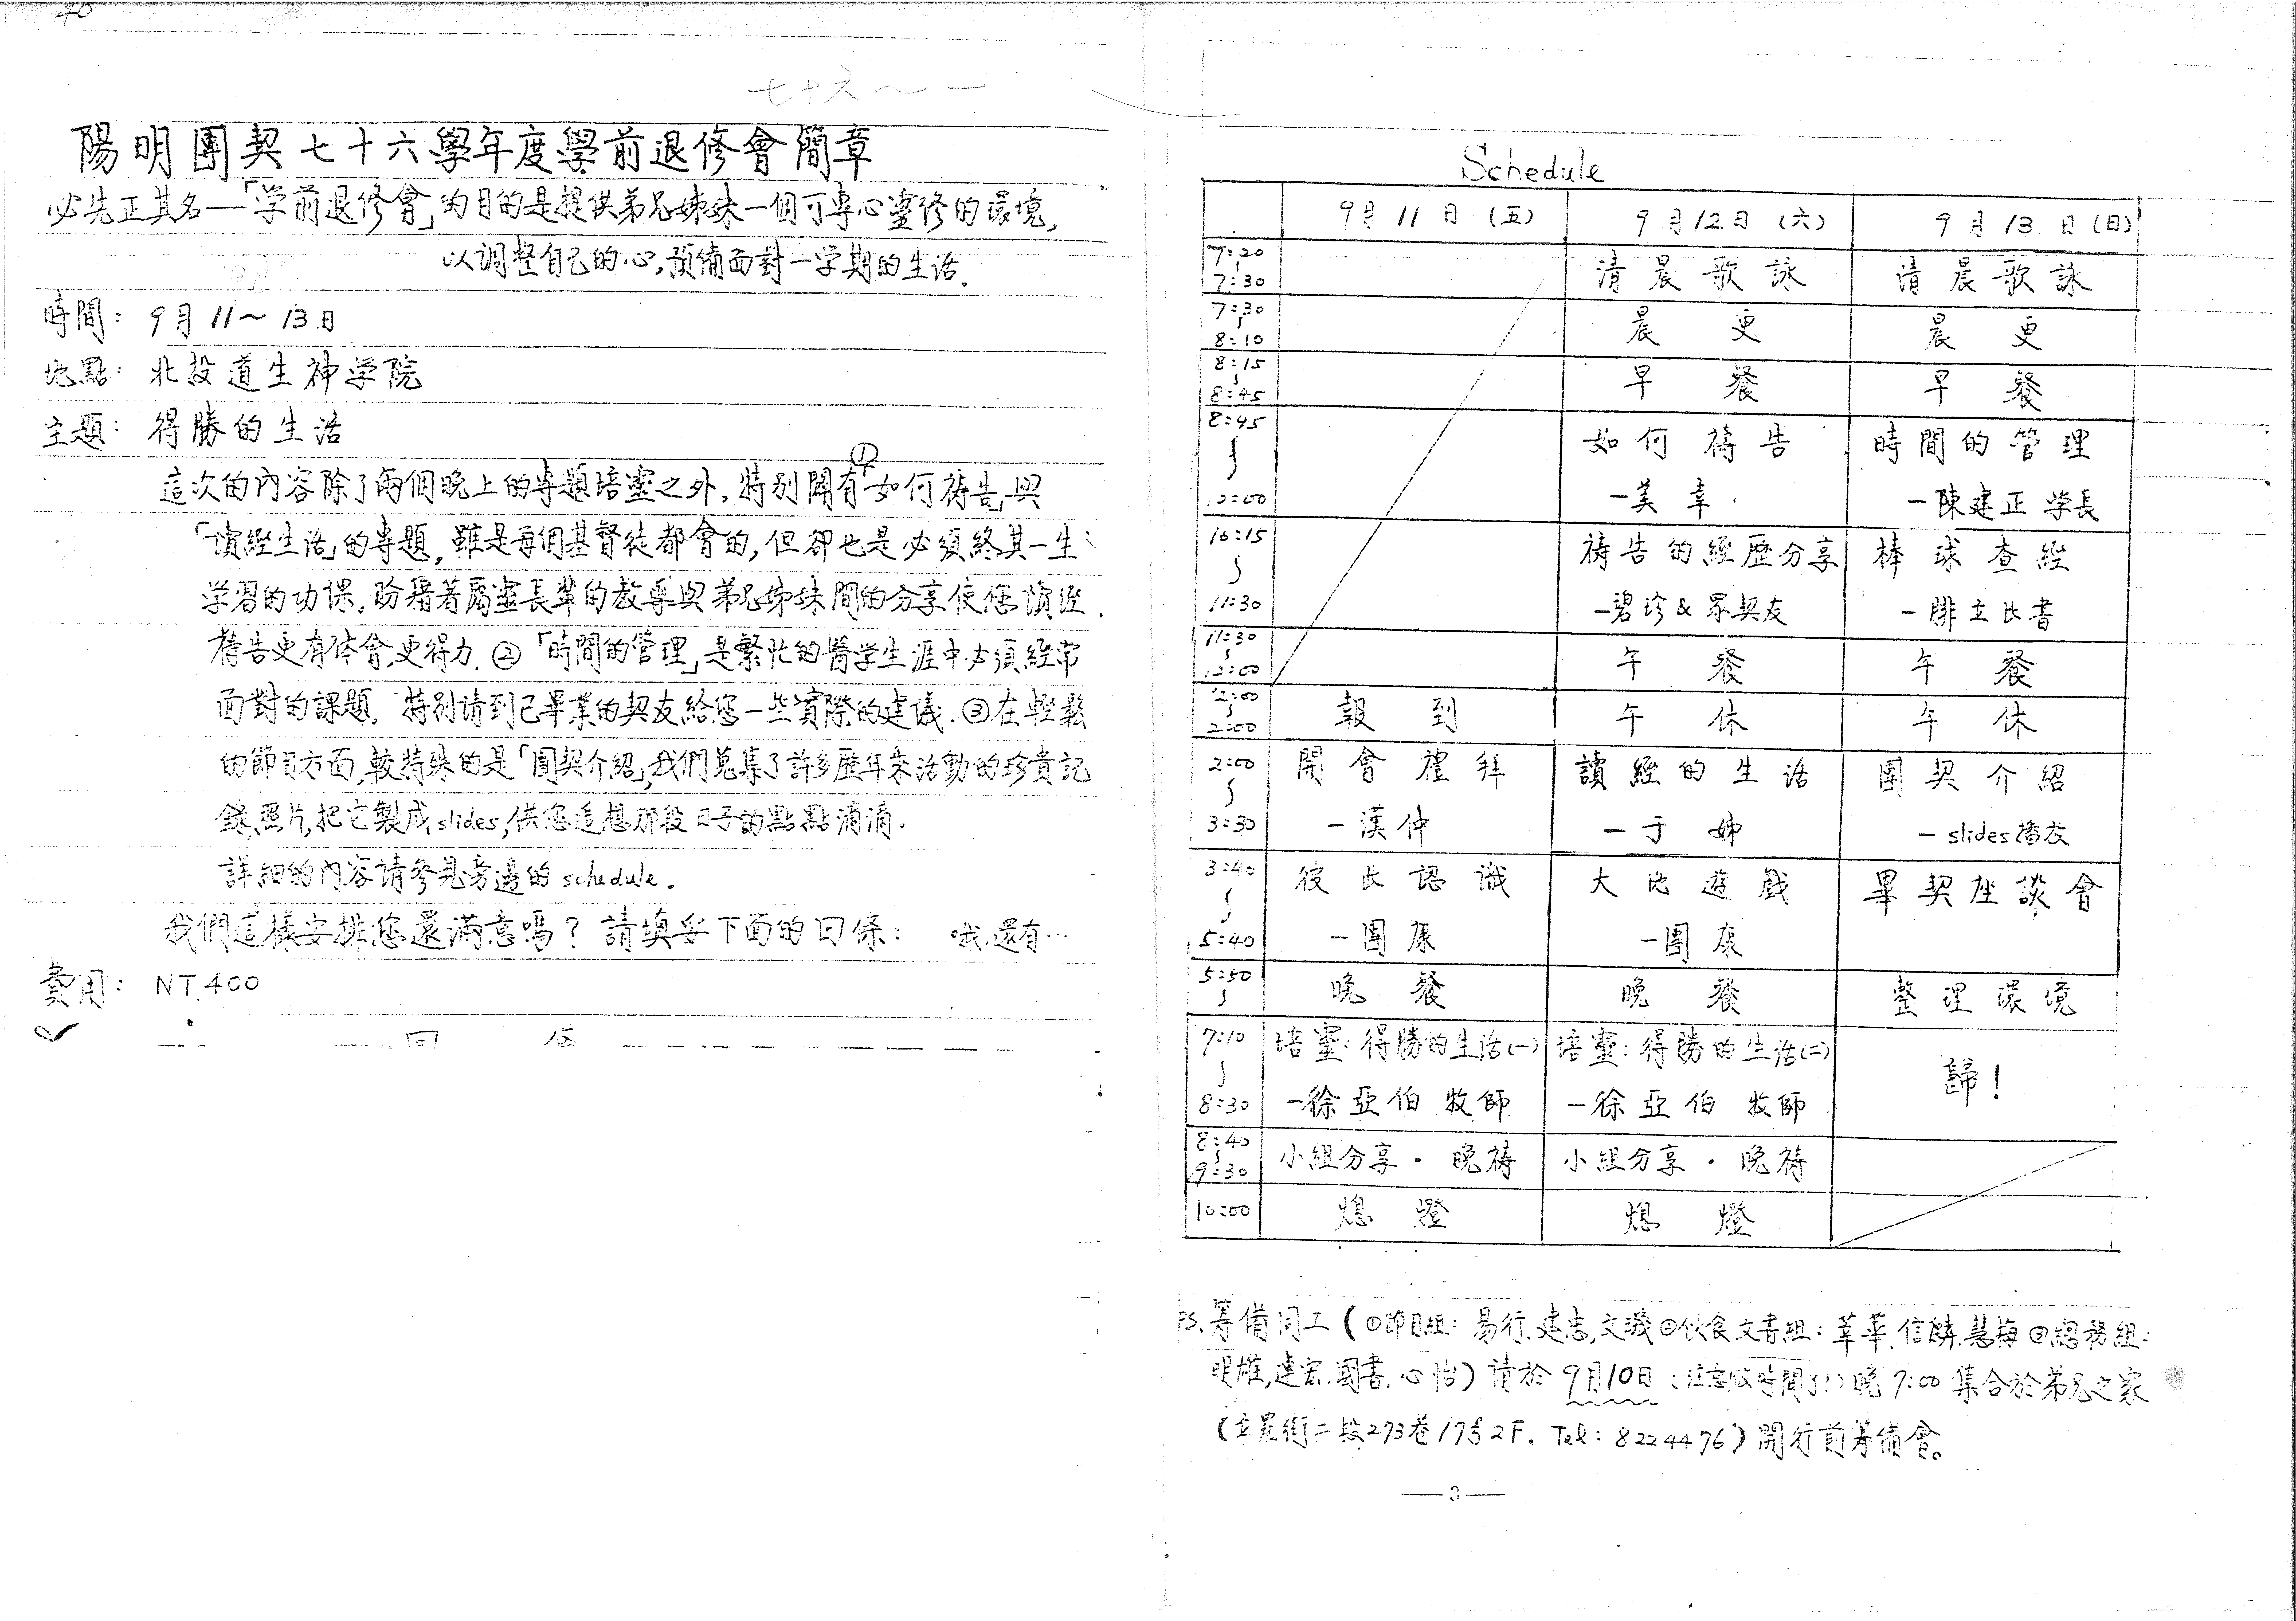 40
七十六～一
陽明團契七十六學年度學前退修會簡章
必先正其名—「学前退修會」的目的是提供弟兄姊妹一個可專心靈修的環境,
以調整自己的心,預備面對一学期的生活.
時間: 9月11～13日
地點: 北投道生神学院
主題: 得勝的生活
這次的內容除了兩個晚上的專題培靈之外,特別開有①「如何禱告」與
「讀經生活」的專題,雖是每個基督徒都會的,但卻也是必須終其一生
学習的功課.盼藉著屬靈長輩的教導與弟兄姊妹間的分享使您讀經.
禱告更有体會,更得力.②「時間的管理」是繁忙的醫学生涯中必須經常
面對的課題,特別请到已畢業的契友給您一些實際的建議.③在輕鬆
的節目方面,較特殊的是「團契介紹」,我們蒐集了許多歷年來活動的珍貴記
錄,照片,把它製成slides,供您追想那段日子的點點滴滴.
詳細的內容请參見旁邊的schedule.
我們這樣安排您還滿意嗎? 請填妥下面的回條: 哦,還有…
費用: NT.400
回
Schedule
9月11日(五) 9月12日(六) 9月13日(日)
7:20～7:30 清晨歌詠 清晨歌詠
7:30～8:10 晨更 晨更
8:15～8:45 早餐 早餐
8:45～10:00 如何禱告 時間的管理
—美幸 —陳建正学長
10:15～11:30 禱告的經歷分享 棒球查經
—碧珍&眾契友 —腓立比書
11:30～12:00 午餐 午餐
12:00～2:00 報到 午休 午休
2:00～3:30 開會禮拜 讀經的生活 團契介紹
—漢仲 —于姊 —slides播放
3:40～5:40 彼此認識 大地遊戲 畢契座談會
—團康 —團康
5:50～ 晚餐 晚餐 整理環境
7:10～8:30 培靈:得勝的生活(一) 培靈:得勝的生活(二) 歸!
—徐亞伯牧師 —徐亞伯牧師
8:40～9:30 小組分享·晚禱 小組分享·晚禱
10:00 熄燈 熄燈
PS.籌備同工(①節目組:易行.建志,文璣②伙食文書組:莘華.信麟.慧梅③總務組:
明雄,建宏.國書.心怡)请於9月10日(注意改時間了!)晚7:00集合於弟兄之家
(立農街二段273巷17号2F. Tel:8224476)開行前籌備會。
—3—